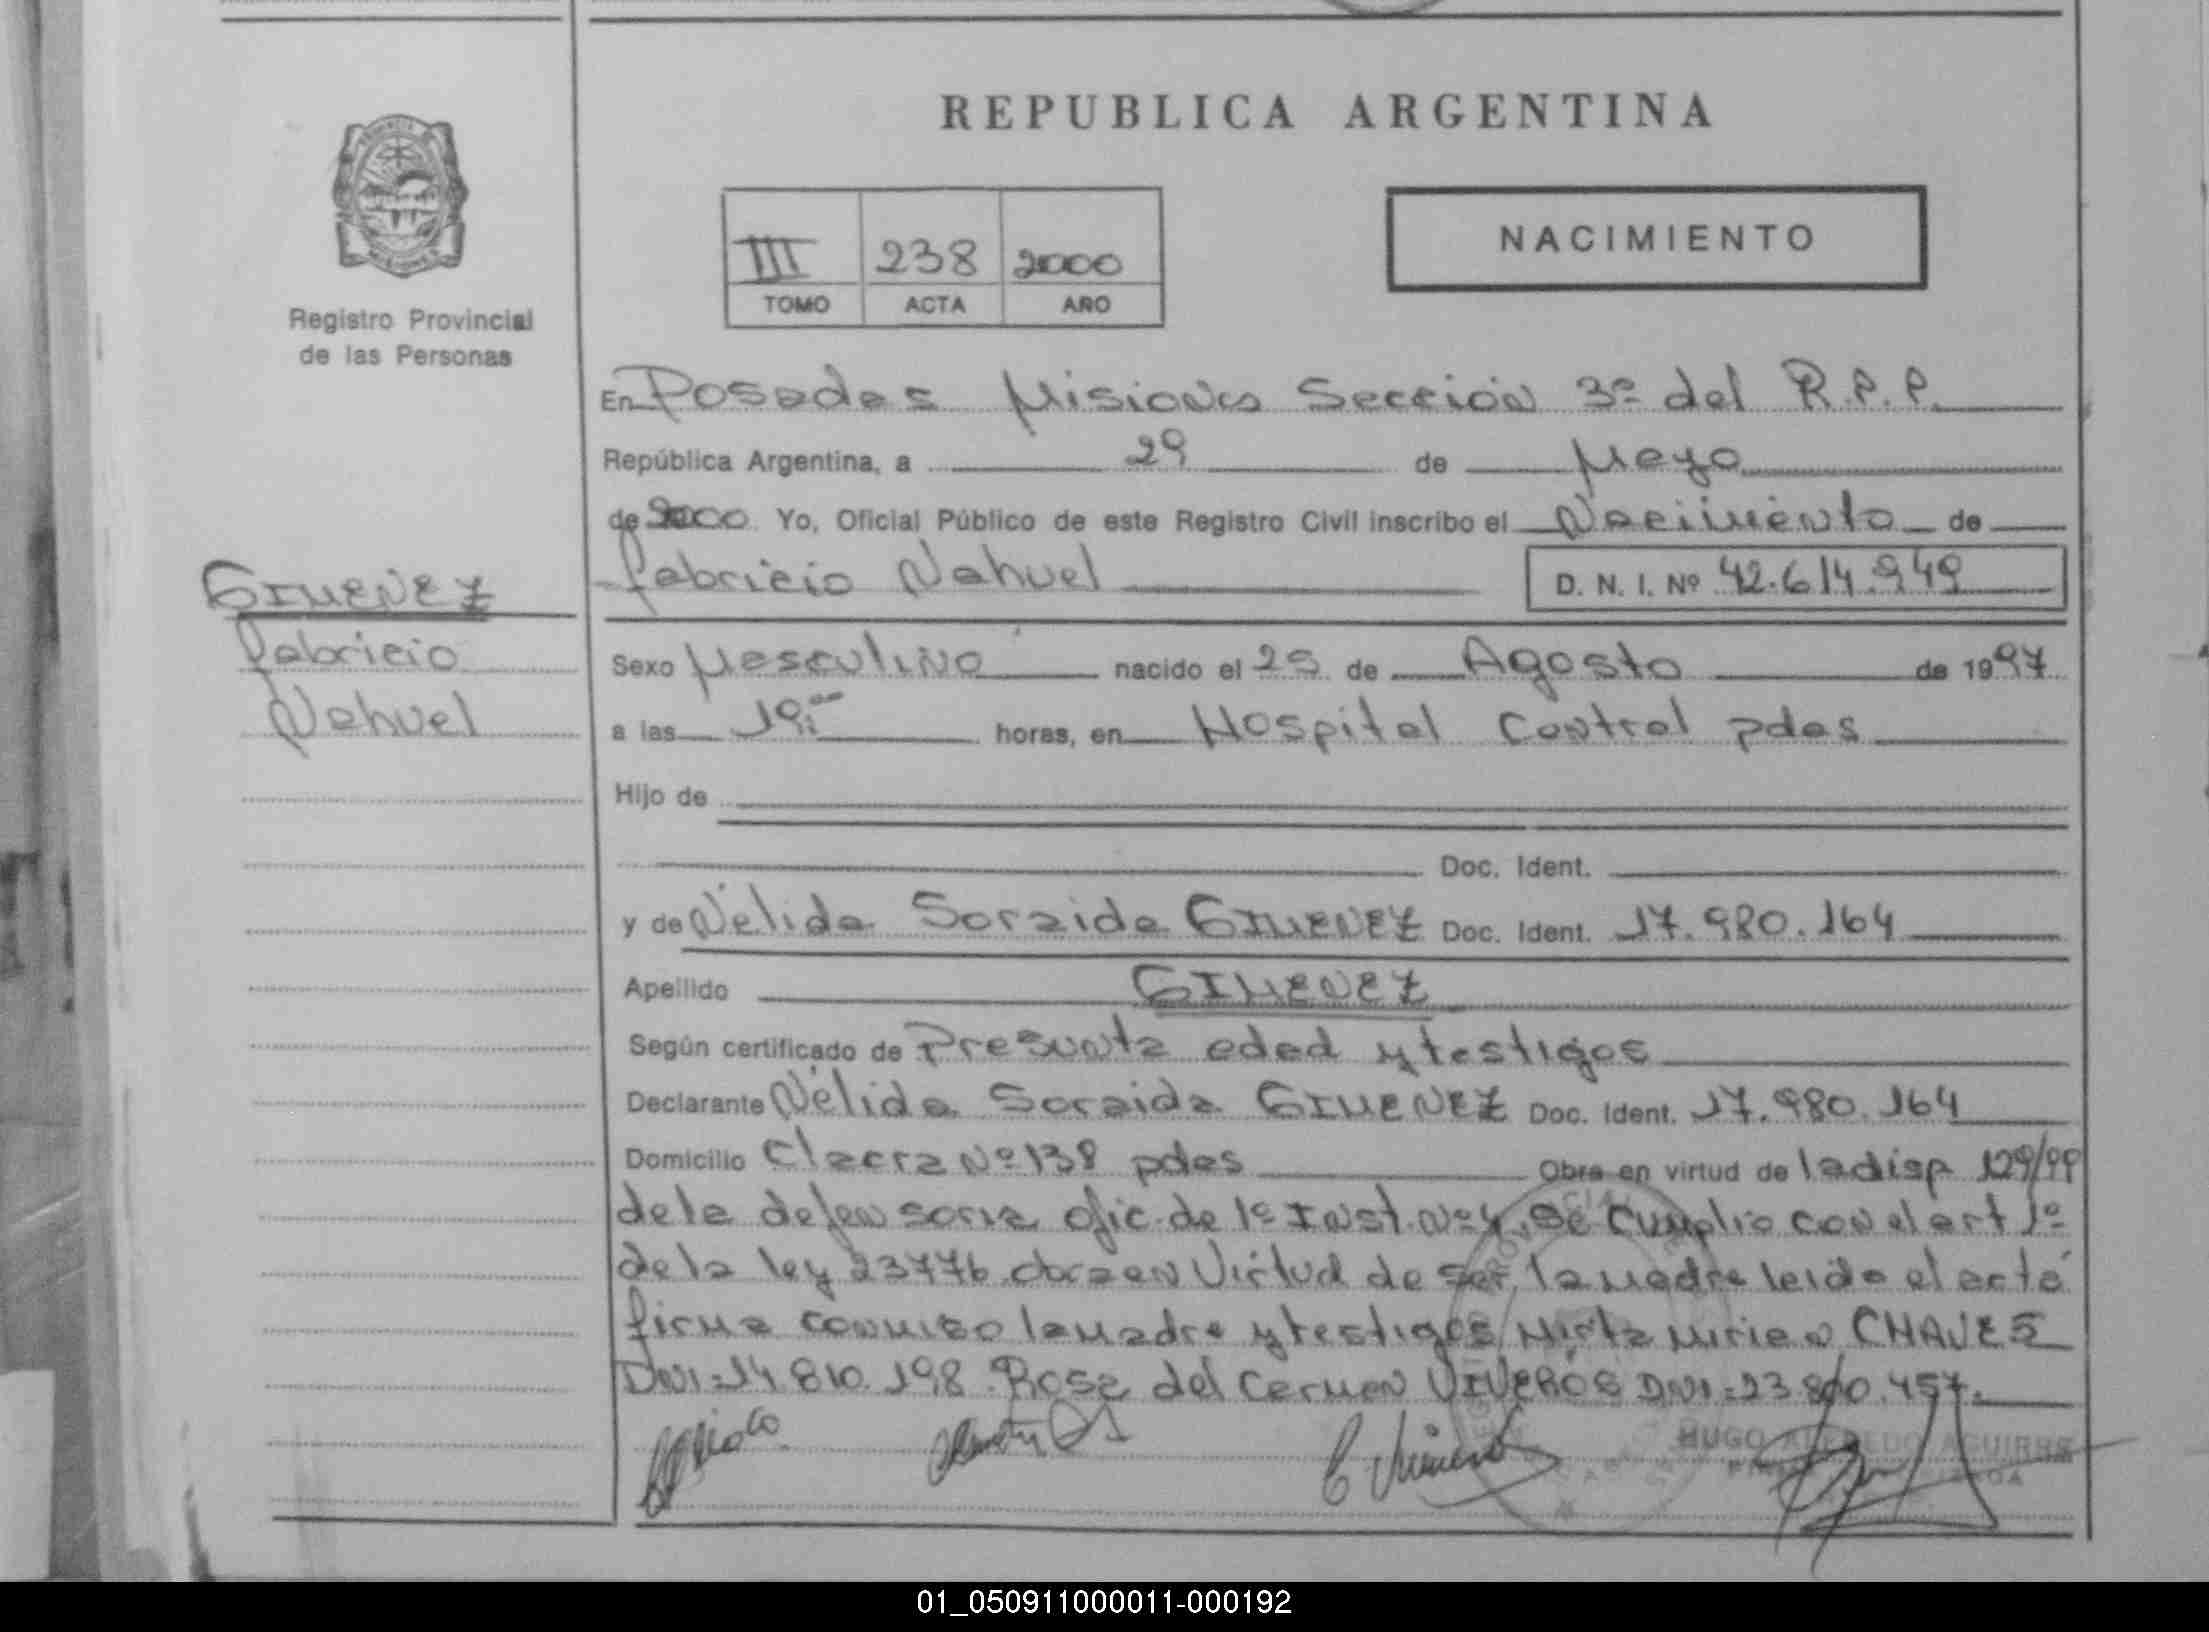 REPUBLICA ARGENTINA
NACIMIENTO
III 238 2000
TOMO ACTA AÑO
Registro Provincial
de las Personas
En Posadas Misiones Sección 3ª del R.P.P.
República Argentina, a 29 de Mayo
de 2000 Yo, Oficial Público de este Registro Civil inscribo el Nacimiento de
Fabricio Nahuel D. N. I. Nº 42.614.949
GIMENEZ
Fabricio
Nahuel
Sexo Masculino nacido el 25 de Agosto de 1997
a las 19:00 horas, en Hospital Central pdas
Hijo de
Doc. Ident.
y de Nélida Soraida GIMENEZ Doc. Ident. 17.980.164
Apellido GIMENEZ
Según certificado de Presunta edad y testigos
Declarante Nélida Soraida GIMENEZ Doc. Ident. 17.980.164
Domicilio Chacra Nº 138 pdas Obra en virtud de la disp 129/99
de la defensoria ofic. de 1º Inst. Nº 4, se cumplio con el art 1º
de la ley 23776 obra en Virtud de ser la madre leida el acta
firma conmigo la madre y testigos Mirta Mirian CHAVES
DNI=14.810.198. Rosa del Carmen VIVEROS DNI=23.800.457.
HUGO ALFREDO AGUIRRE
01_050911000011-000192